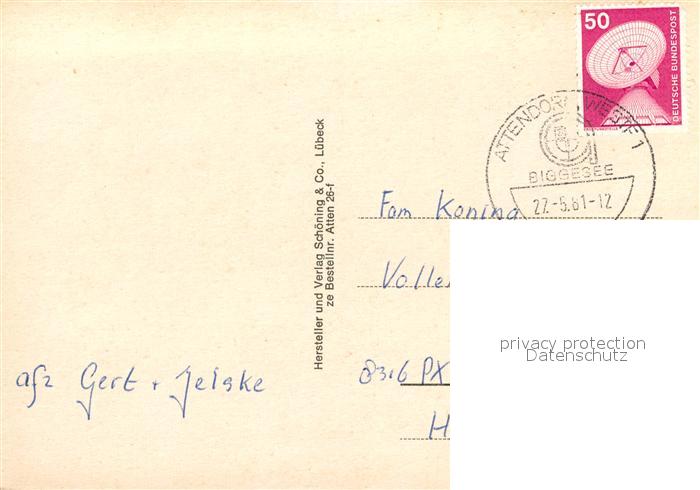 50
DEUTSCHE BUNDESPOST
ATTENDORN, WESTF 1
BIGGESEE
27.-5.81-12
Hersteller und Verlag Schöning & Co., Lübeck
ze Bestellnr. Atten 26-f
Fam Koning
Volle
8316 PX
H
afz Gert + Jelske
privacy protection
Datenschutz